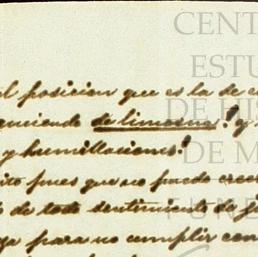 CENT
ESTU
DE HIS
DE M
l posicion que es la de
de limosna! y
y humillaciones!
ito pues que no puedo cree
de todo sentimiento de j
para no cumplir con